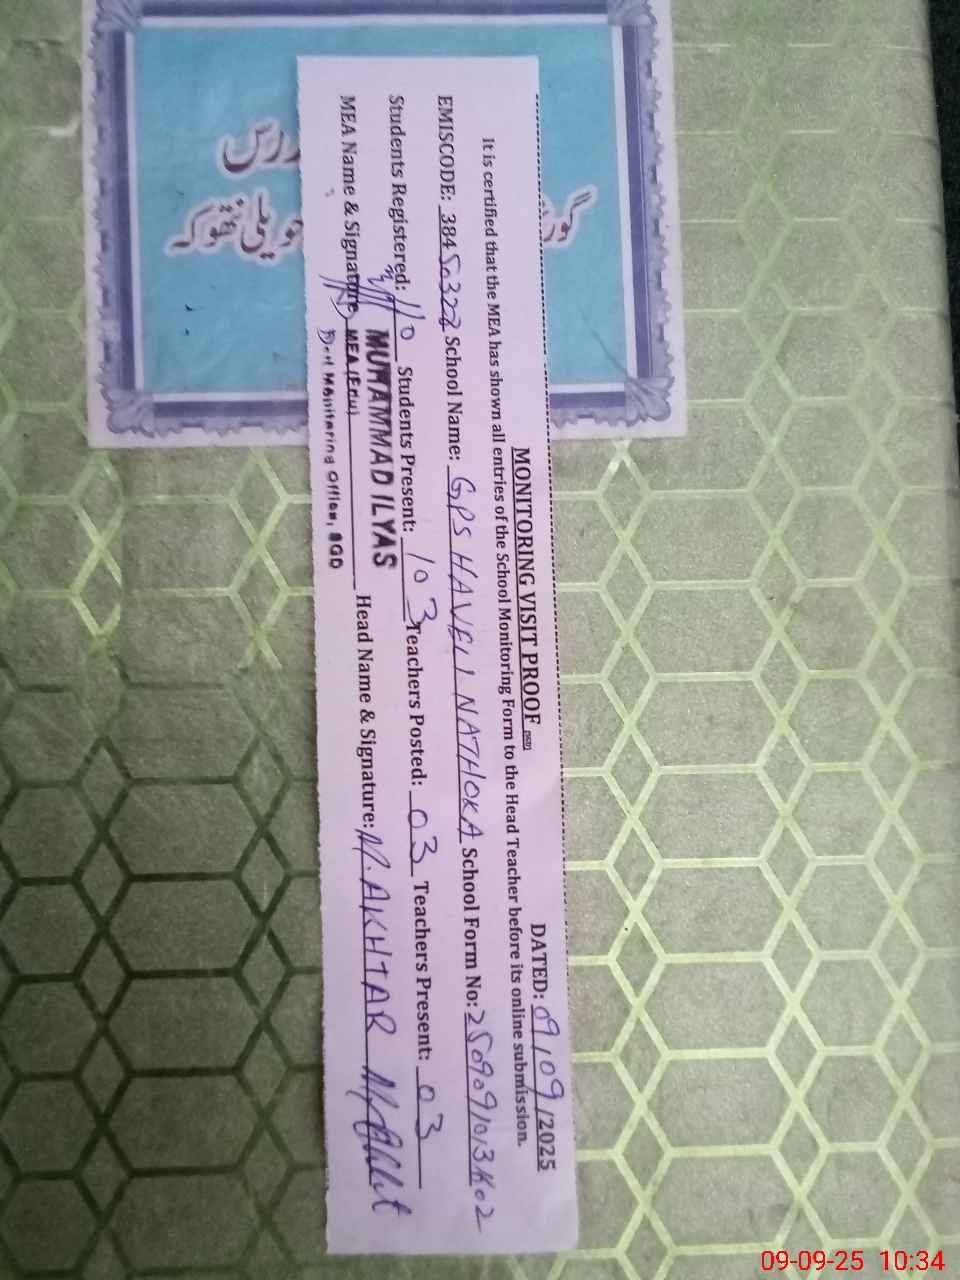 MONITORING VISIT PROOF (SGD) DATED: 09/09/2025
It is certified that the MEA has shown all entries of the School Monitoring Form to the Head Teacher before its online submission.
EMISCODE: 38450322 School Name: GPS HAVELI NATHOKA School Form No: 250909
Students Registered: 110 Students Present: 103 Teachers Posted: 03 Teachers Present: 03
MUHAMMAD ILYAS
MEA Name & Signature MEA (Edu) Head Name & Signature: M. AKHTAR
Monitoring Officer, SGD
09-09-25 10:34